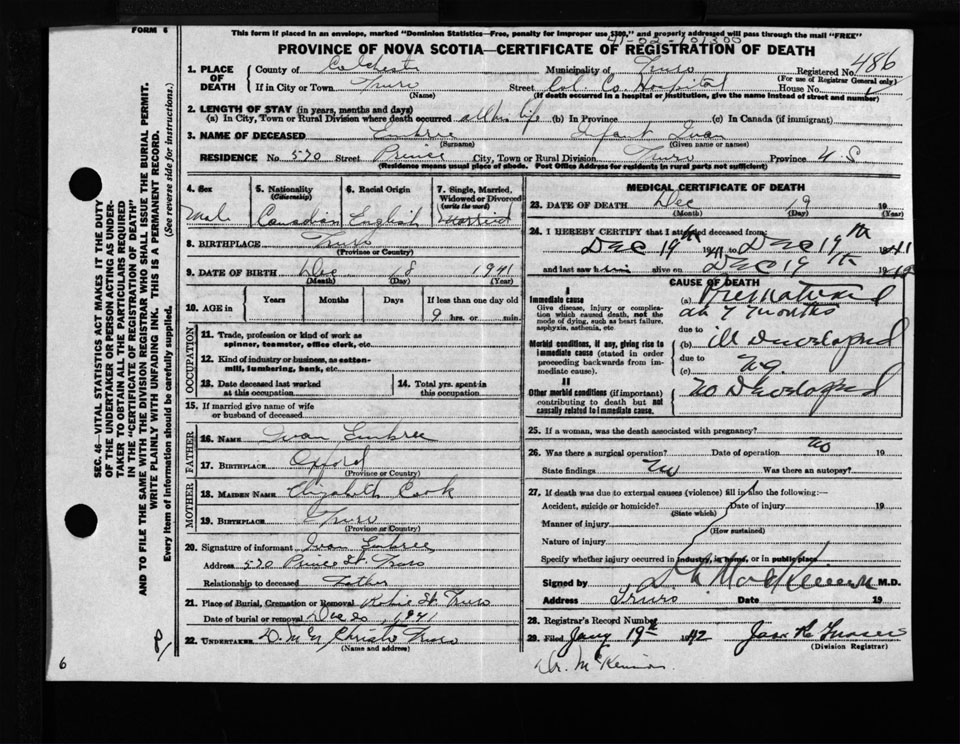 FORM 6
This form if placed in an envelope, marked "Dominion Statistics—Free, penalty for improper use $300," and properly addressed will pass through the mail "FREE"
PROVINCE OF NOVA SCOTIA—CERTIFICATE OF REGISTRATION OF DEATH
1. PLACE OF DEATH County of Colchester Municipality of Truro Registered No. 486
(For use of Registrar General only)
If in City or Town Truro (Name) Street Col. Co. Hospital House No.
(If death occurred in a hospital or institution, give the name instead of street and number)
2. LENGTH OF STAY (in years, months and days)
(a) In City, Town or Rural Division where death occurred all his life (b) In Province (c) In Canada (if immigrant)
3. NAME OF DECEASED Embree (Surname) Infant Ivan (Given name or names)
RESIDENCE No 570 Street Prince City, Town or Rural Division Truro Province N.S
(Residence means usual place of abode. Post Office Address for residents in rural parts not sufficient)
4. Sex Male
5. Nationality (Citizenship) Canadian
6. Racial Origin English
7. Single, Married, Widowed or Divorced (write the word) Married
8. BIRTHPLACE Truro
(Province or Country)
9. DATE OF BIRTH Dec (Month) 18 (Day) 1941 (Year)
10. AGE in Years Months Days If less than one day old
9 hrs. or min.
OCCUPATION
11. Trade, profession or kind of work as spinner, teamster, office clerk, etc.
12. Kind of industry or business, as cotton-mill, lumbering, bank, etc.
13. Date deceased last worked at this occupation
14. Total yrs. spent in this occupation
15. If married give name of wife or husband of deceased
FATHER
16. NAME Ivan Embree
17. BIRTHPLACE Oxford
(Province or Country)
MOTHER
18. MAIDEN NAME Elizabeth Cook
19. BIRTHPLACE Truro
(Province or Country)
20. Signature of informant Ivan Embree
Address 570 Prince St. Truro
Relationship to deceased Father
21. Place of Burial, Cremation or Removal Robie St. Truro
Date of burial or removal Dec 20, 1941
22. UNDERTAKER D. McN Christie Truro
(Name and address)
MEDICAL CERTIFICATE OF DEATH
23. DATE OF DEATH Dec (Month) 19 (Day) 19 (Year)
24. I HEREBY CERTIFY that I attended deceased from:
Dec 19th 1941 Dec 19th 1941
and last saw him alive on Dec 19th 19
CAUSE OF DEATH
I
Immediate cause
Give disease, injury or complication which caused death, not the mode of dying, such as heart failure, asphyxia, asthenia, etc.
(a) Premature
at 7 months
due to
Morbid conditions, if any, giving rise to immediate cause (stated in order proceeding backwards from immediate cause).
(b) ill Developed
due to
(c)
II
Other morbid conditions (if important) contributing to death but not causally related to immediate cause.
25. If a woman, was the death associated with pregnancy?
26. Was there a surgical operation? no Date of operation 19
State findings no Was there an autopsy?
27. If death was due to external causes (violence) fill in also the following:—
Accident, suicide or homicide? (State which) Date of injury 19
Manner of injury (How sustained)
Nature of injury
Specify whether injury occurred in industry, in home, or in public place
Signed by M.D.
Address Truro Date 19
28. Registrar's Record Number
29. Filed Jany 19th 1942 Fraser
(Division Registrar)
Dr. McKinnon
SEC. 46—VITAL STATISTICS ACT MAKES IT THE DUTY
OF THE UNDERTAKER OR PERSON ACTING AS UNDER-
TAKER TO OBTAIN ALL THE PARTICULARS REQUIRED
IN THE "CERTIFICATE OF REGISTRATION OF DEATH"
AND TO FILE THE SAME WITH THE DIVISION REGISTRAR WHO SHALL ISSUE THE BURIAL PERMIT.
WRITE PLAINLY WITH UNFADING INK. THIS IS A PERMANENT RECORD.
Every item of information should be carefully supplied. (See reverse side for instructions.)
6